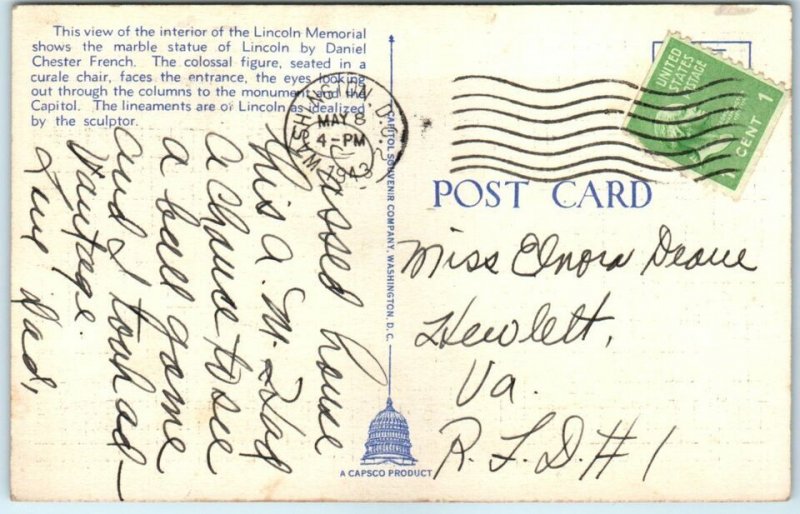 This view of the interior of the Lincoln Memorial
shows the marble statue of Lincoln by Daniel
Chester French. The colossal figure, seated in a
curale chair, faces the entrance, the eyes looking
out through the columns to the monument and the
Capitol. The lineaments are of Lincoln as idealized
by the sculptor.
WASHINGTON, D.C.
MAY 8
4-PM
1943
UNITED
STATES
POSTAGE
1 CENT 1
POST CARD
Passed house
this a.m. I got
a chance to see
a ball game
and I took ad-
vantage.
Love Dad,
CAPITOL SOUVENIR COMPANY, WASHINGTON, D. C.
Miss Elnora Deane
Hewlett,
Va.
R. F. D. # 1
A CAPSCO PRODUCT